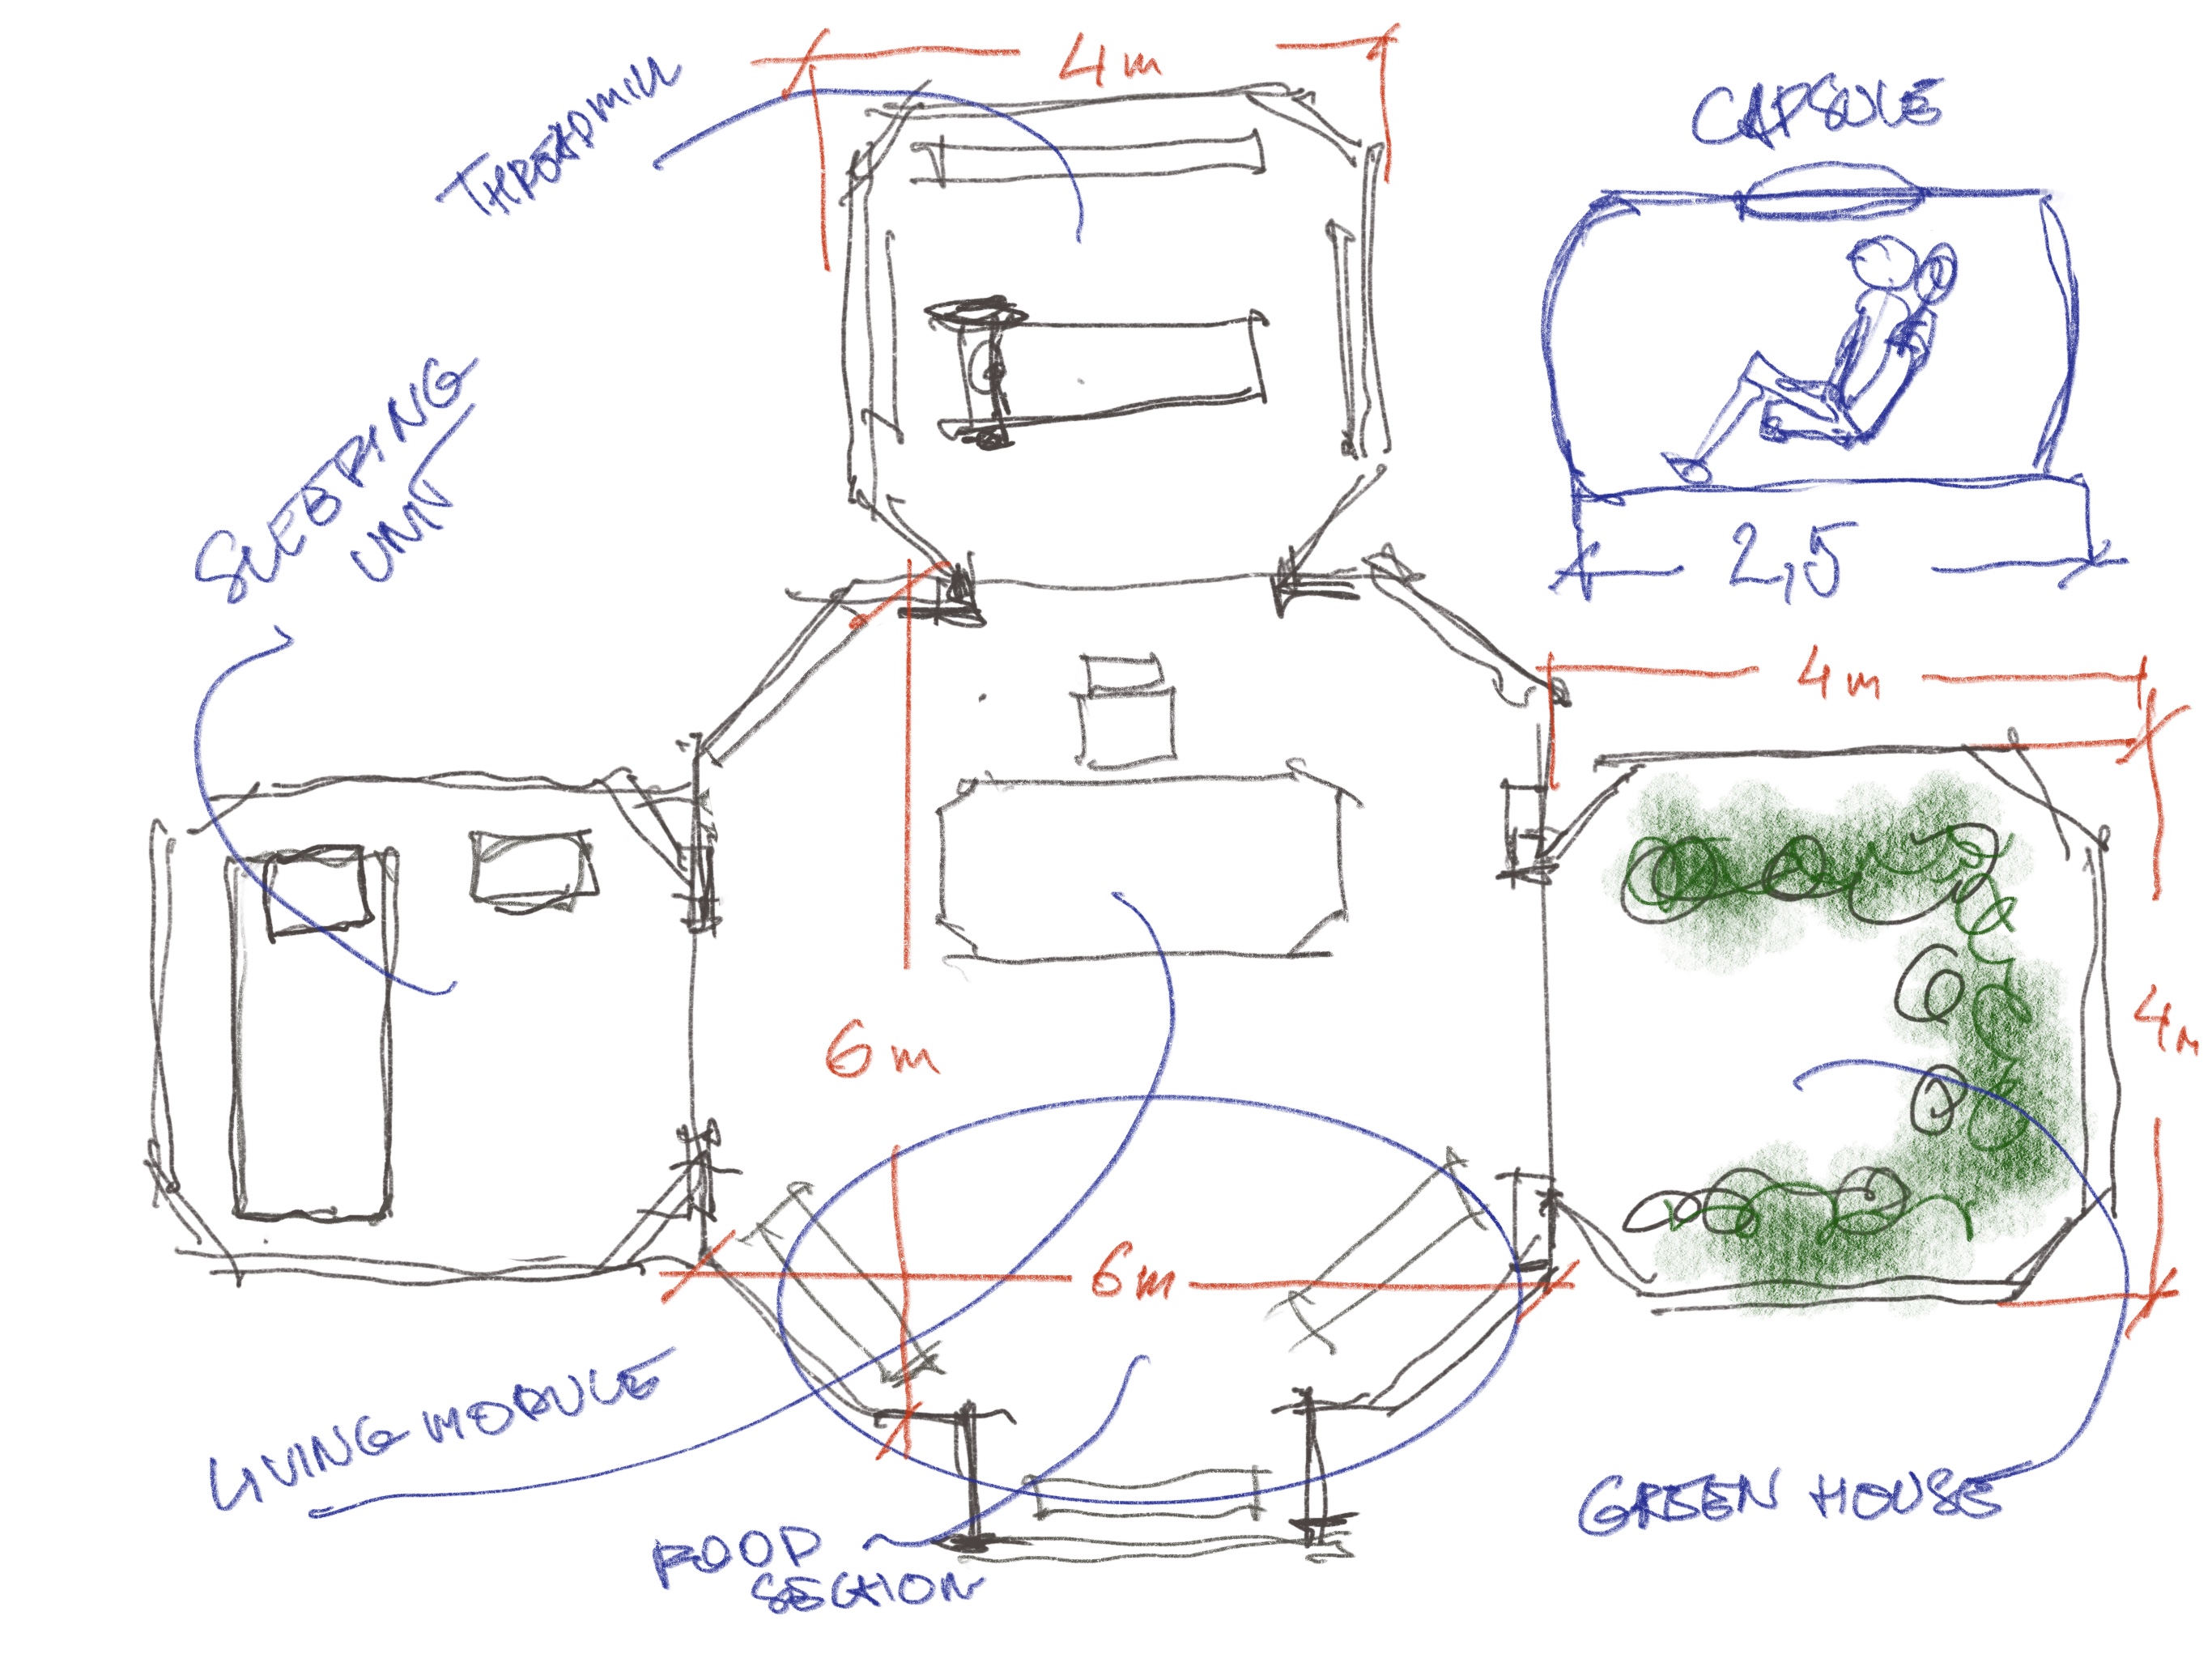 4m
THREADMILL
CAPSULE
SLEEPING
UNIT
2,5
4m
4m
6m
6m
LIVING MODULE
FOOD
SECTION
GREEN HOUSE